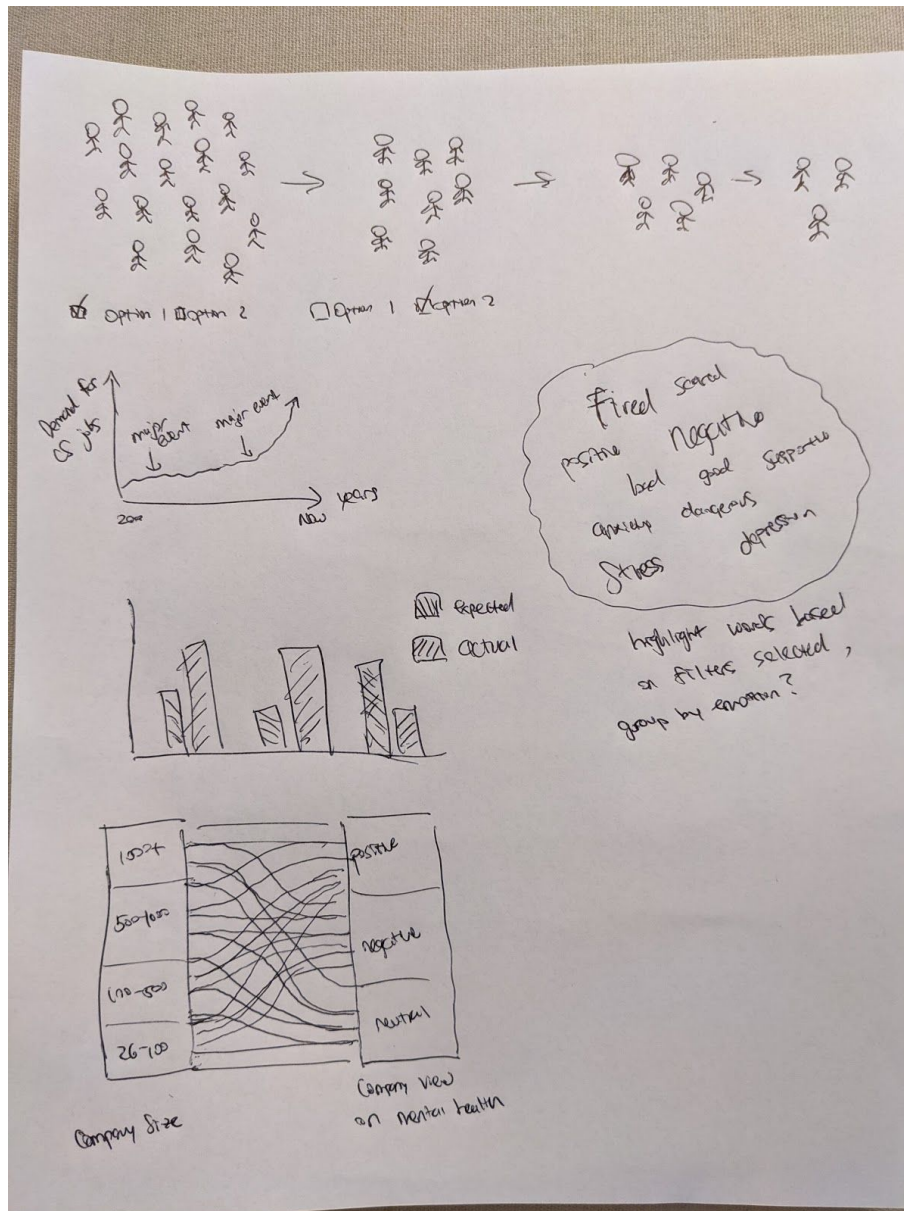 Option 1 Option 2
Option 1 Option 2
Demand for
CS jobs
major
event
major event
2000
Now
years
Fired scared
positive negative
bad good supportive
anxiety dangerous
Stress depression
highlight words based
on filters selected,
group by emotion?
expected
actual
1000+
500-1000
100-500
26-100
positive
negative
neutral
Company Size
Company view
on mental health